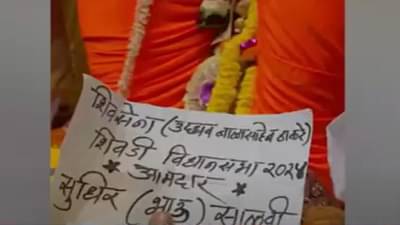 शिवसेना (उध्दव बाळासाहेब ठाकरे)
शिवडी विधानसभा २०२४
* आमदार *
सुधिर (भाऊ) साळवी